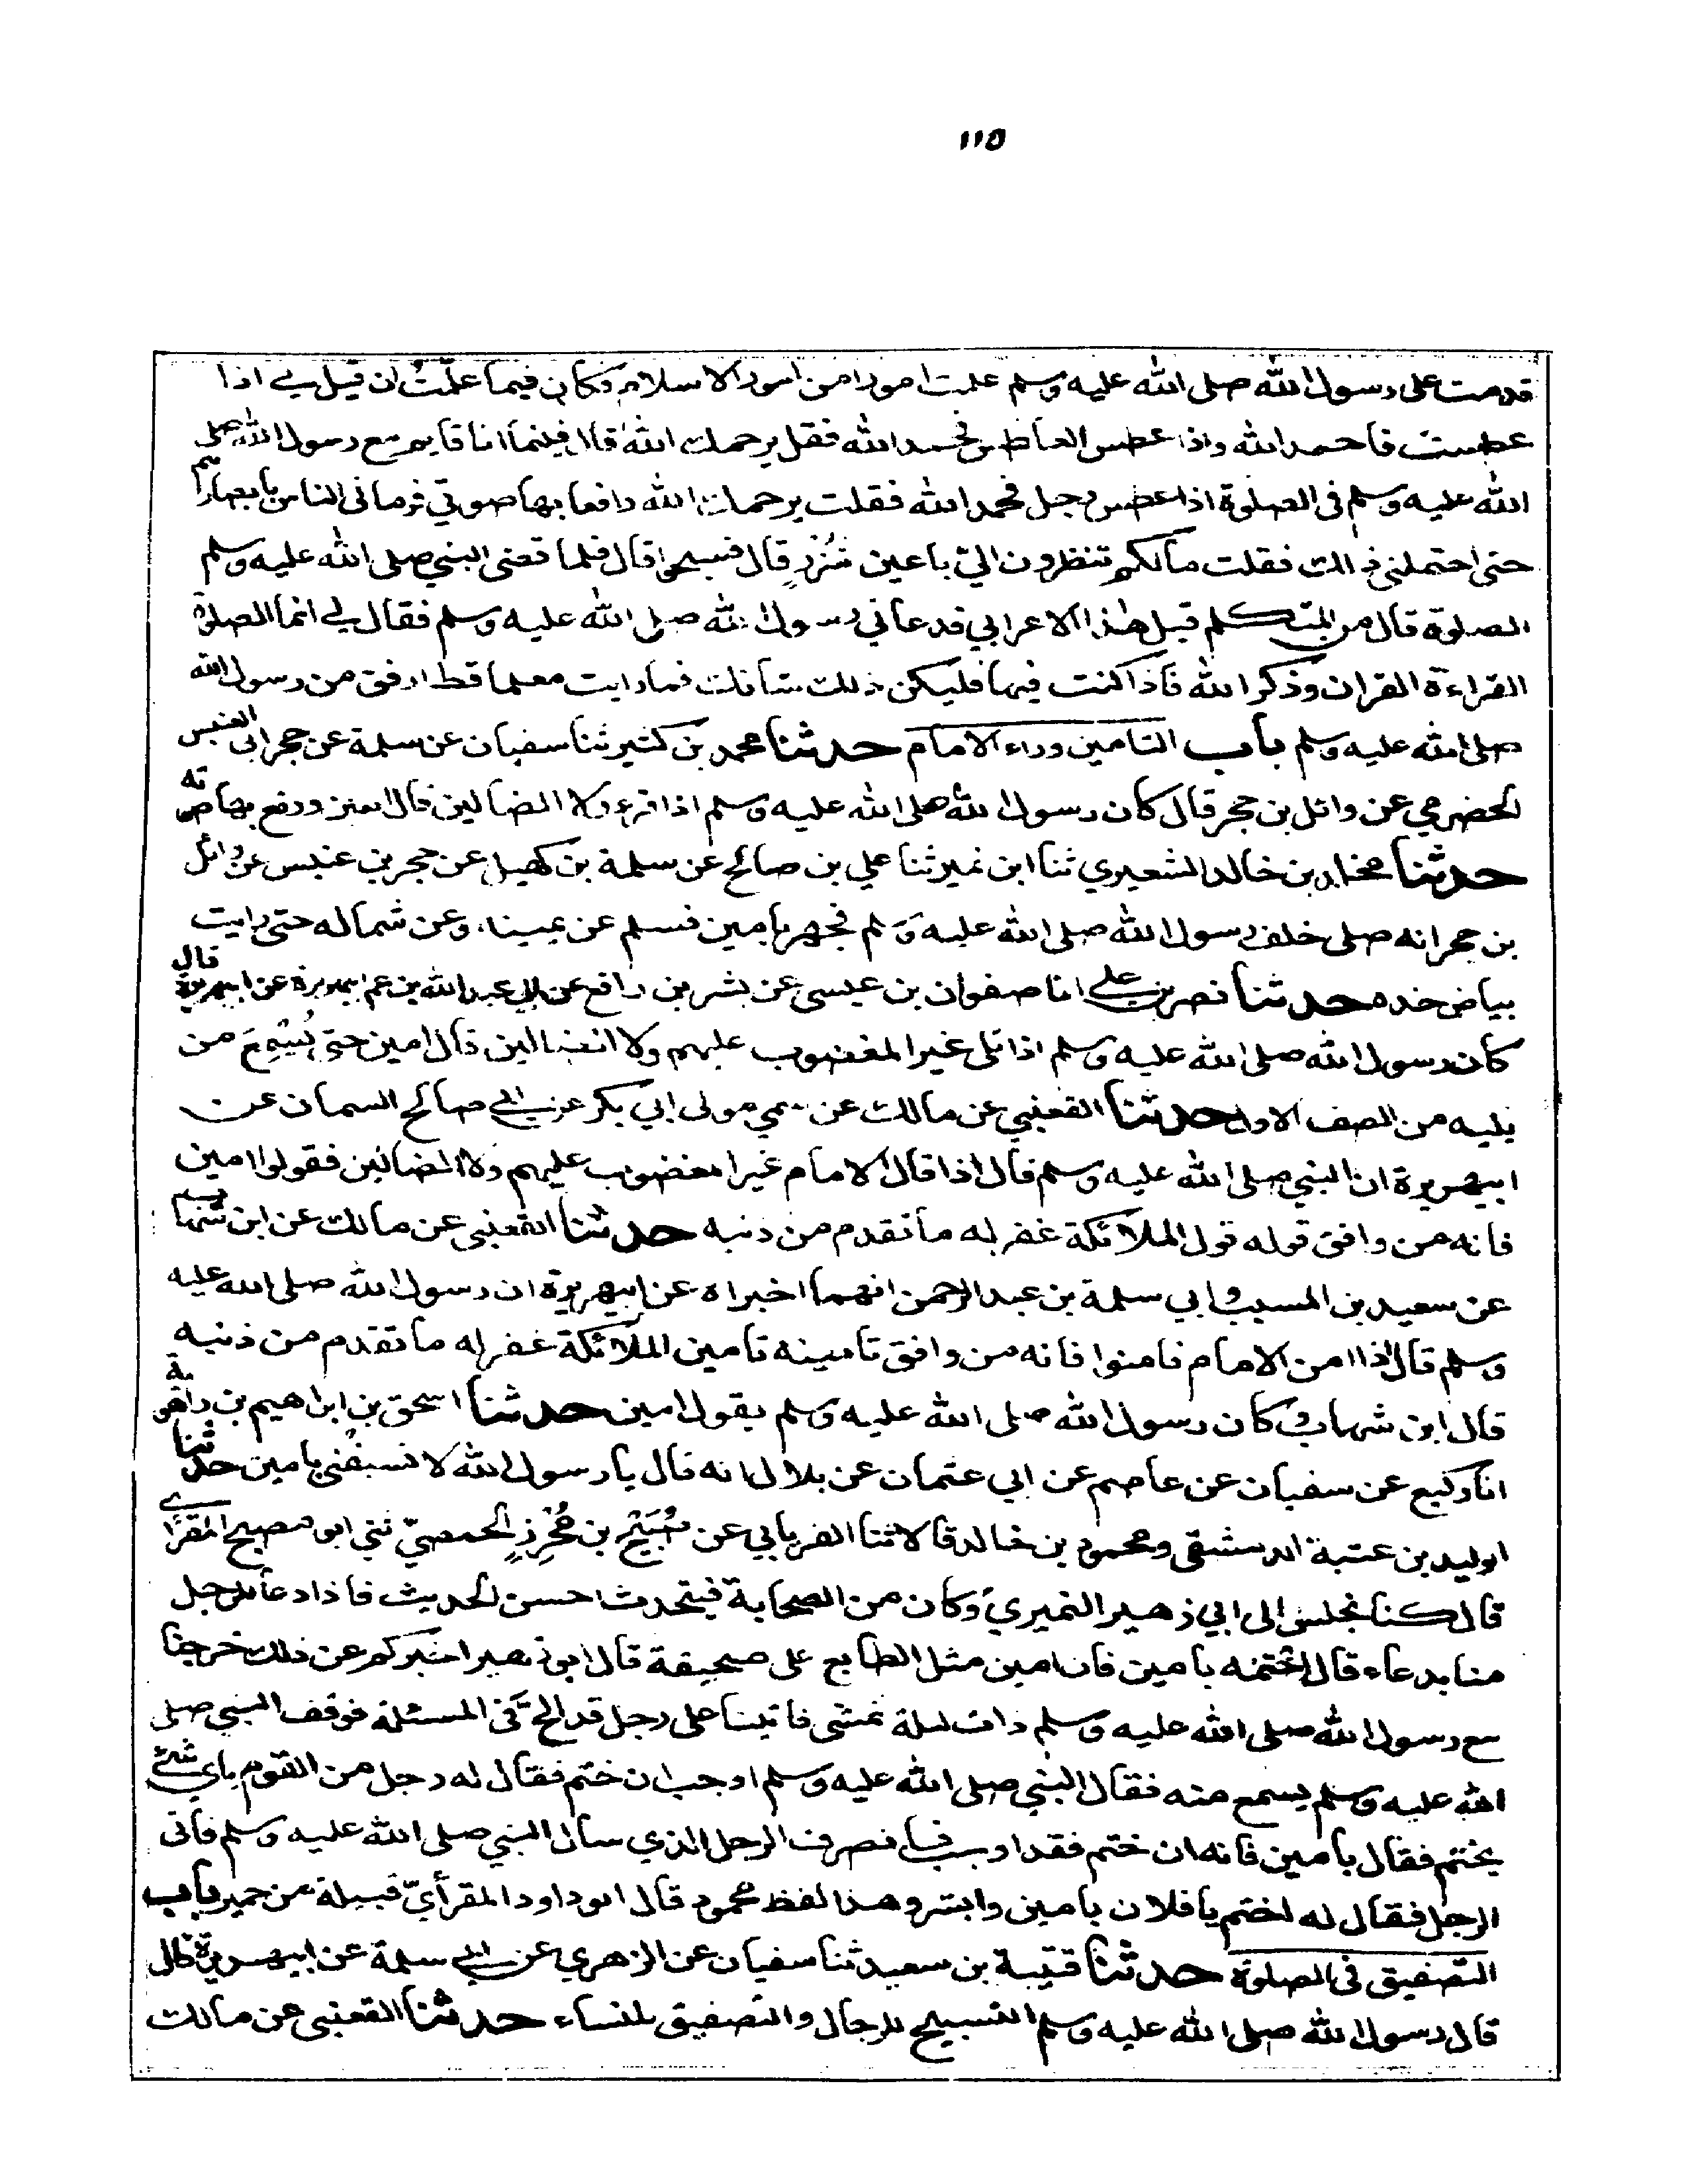 ١١٥
قدمت على رسول الله صلى الله عليه وسلم علمت امورا من امور الاسلام فكان فيما علمت ان قيل لي اذا
عطست فاحمد الله واذا عطس العاطس فحمد الله فقل يرحمك الله قال فبينما انا قايم مع رسول الله صلى
الله عليه وسلم في الصلوة اذا عطس رجل فحمد الله فقلت يرحمك الله رافعا بها صوتي فرماني الناس بابصارهم
حتى احتملني ذالك فقلت مالكم تنظرون الي باعين شُزْرٍ قال فسبحوا قال فلما قضى النبي صلى الله عليه وسلم
الصلوة قال من المتكلم قيل هذا الاعرابي فدعاني رسول الله صلى الله عليه وسلم فقال لي انما الصلوة
القراءة القران وذكر الله فاذا كنت فيها فليكن ذلك شانك فما رايت معلما قط ارفق من رسول الله
صلى الله عليه وسلم باب التامين وراء الامام حدثنا محمد بن كثير ثنا سفيان عن سلمة عن حجر ابي العنبس
الحضرمي عن وائل بن حجر قال كان رسول الله صلى الله عليه وسلم اذا قرء ولا الضالين قال امين ورفع بها صوته
حدثنا مخلد بن خالد الشعيري ثنا ابن نمير ثنا علي بن صالح عن سلمة بن كهيل عن حجر بن عنبس عن وائل
بن حجر انه صلى خلف رسول الله صلى الله عليه وسلم فجهر بامين فسلم عن يمينه وعن شماله حتى رايت
بياض خده حدثنا نصر بن علي انا صفوان بن عيسى عن بشر بن رافع عن ابي عبد الله بن عم ابيهريرة عن ابيهريرة قال
كان رسول الله صلى الله عليه وسلم اذا تلى غير المغضوب عليهم ولا الضالين قال امين حتى يُسْمِعَ من
يليه من الصف الاول حدثنا القعنبي عن مالك عن سمي مولى ابي بكر عن ابي صالح السمان عن
ابيهريرة ان النبي صلى الله عليه وسلم قال اذا قال الامام غير المغضوب عليهم ولا الضالين فقولوا امين
فانه من وافق قوله قول الملائكة غفر له ما تقدم من ذنبه حدثنا القعنبي عن مالك عن ابن شهاب
عن سعيد بن المسيب وابي سلمة بن عبد الرحمن انهما اخبراه عن ابيهريرة ان رسول الله صلى الله عليه
وسلم قال اذا امن الامام فامنوا فانه من وافق تامينه تامين الملائكة غفر له ما تقدم من ذنبه
قال ابن شهاب وكان رسول الله صلى الله عليه وسلم يقول امين حدثنا اسحق بن ابراهيم بن راهوية
انا وكيع عن سفيان عن عاصم عن ابي عثمان عن بلال انه قال يا رسول الله لا تسبقني بامين حدثنا
الوليد بن عتبة الدمشقي ومحمود بن خالد قالا ثنا الفريابي عن صُبَيْحِ بن مُحْرِزٍ الحمصيّ ثني ابو مصبح المقرأي
قال كنا نجلس الى ابي زهير النميري وكان من الصحابة فيتحدث احسن الحديث فاذا دعا الرجل
منا بدعاء قال اختمه بامين فان امين مثل الطابع على صحيفة قال ابو زهير اخبركم عن ذلك خرجنا
مع رسول الله صلى الله عليه وسلم ذات ليلة نمشي فاتينا على رجل قد الح في المسئلة فوقف النبي صلى
الله عليه وسلم يسمع منه فقال النبي صلى الله عليه وسلم اوجب ان ختم فقال له رجل من القوم باي شئ
يختم فقال بامين فانه ان ختم فقد اوجب فانصرف الرجل الذي سال النبي صلى الله عليه وسلم فاتى
الرجل فقال له اختم يا فلان بامين وابشر وهذا لفظ محمود قال ابو داود المقرأيّ قبيلة من حمير باب
التصفيق في الصلوة حدثنا قتيبة بن سعيد ثنا سفيان عن الزهري عن ابي سلمة عن ابيهريرة قال
قال رسول الله صلى الله عليه وسلم التسبيح للرجال والتصفيق للنساء حدثنا القعنبي عن مالك